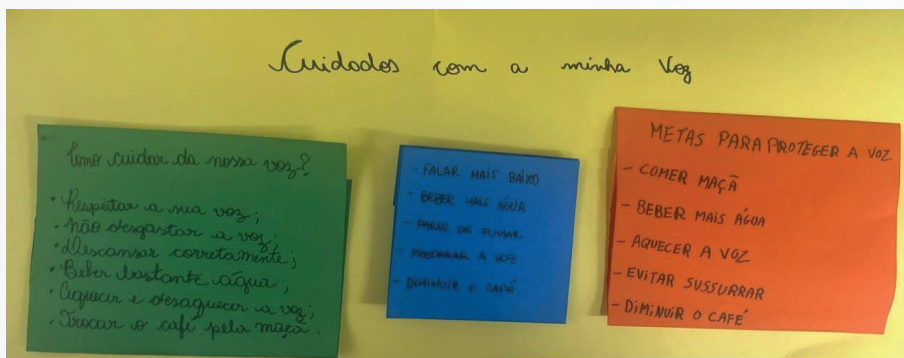 Cuidados com a minha voz
Como cuidar da nossa voz?
• Respeitar a sua voz;
• Não desgastar a voz;
• Descansar corretamente;
• Beber bastante água;
• Aquecer e desaquecer a voz;
• Trocar o café pela maçã.
- FALAR MAIS BAIXO
- BEBER MAIS ÁGUA
- PARAR DE FUMAR
- PREPARAR A VOZ
- DIMINUIR O CAFÉ
METAS PARA PROTEGER A VOZ
- COMER MAÇÃ
- BEBER MAIS ÁGUA
- AQUECER A VOZ
- EVITAR SUSSURRAR
- DIMINUIR O CAFÉ